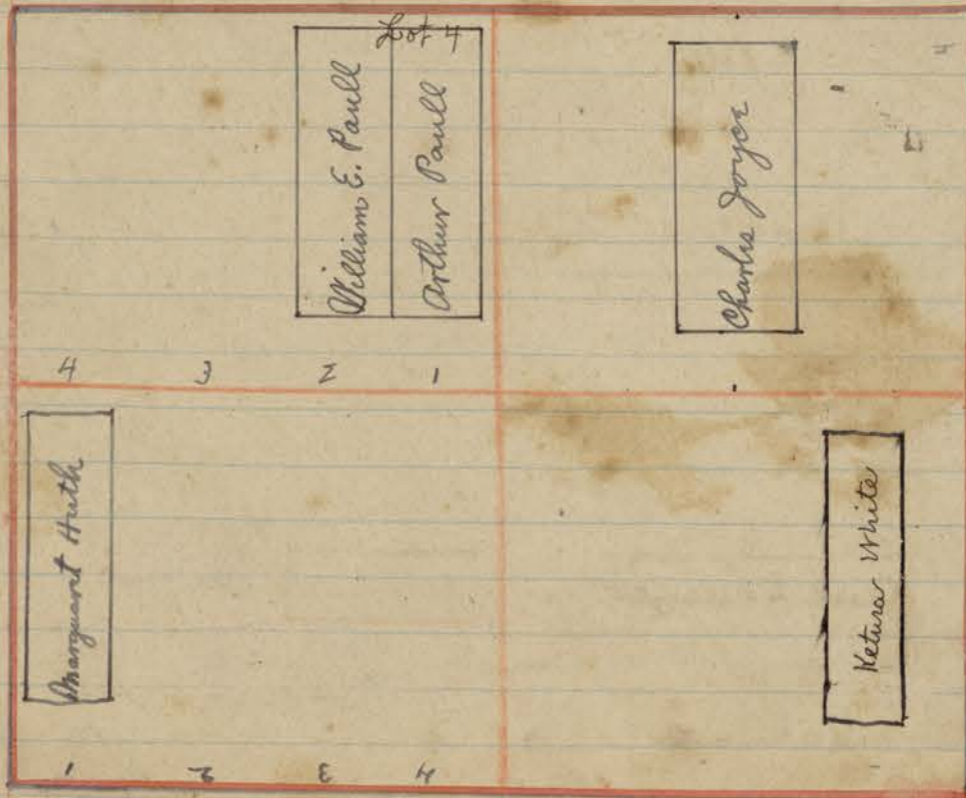 Lot 4
William E. Paull
Arthur Paull
Charles Joyce
4 3 2 1
Margaret Huth
Ketura White
1 2 3 4